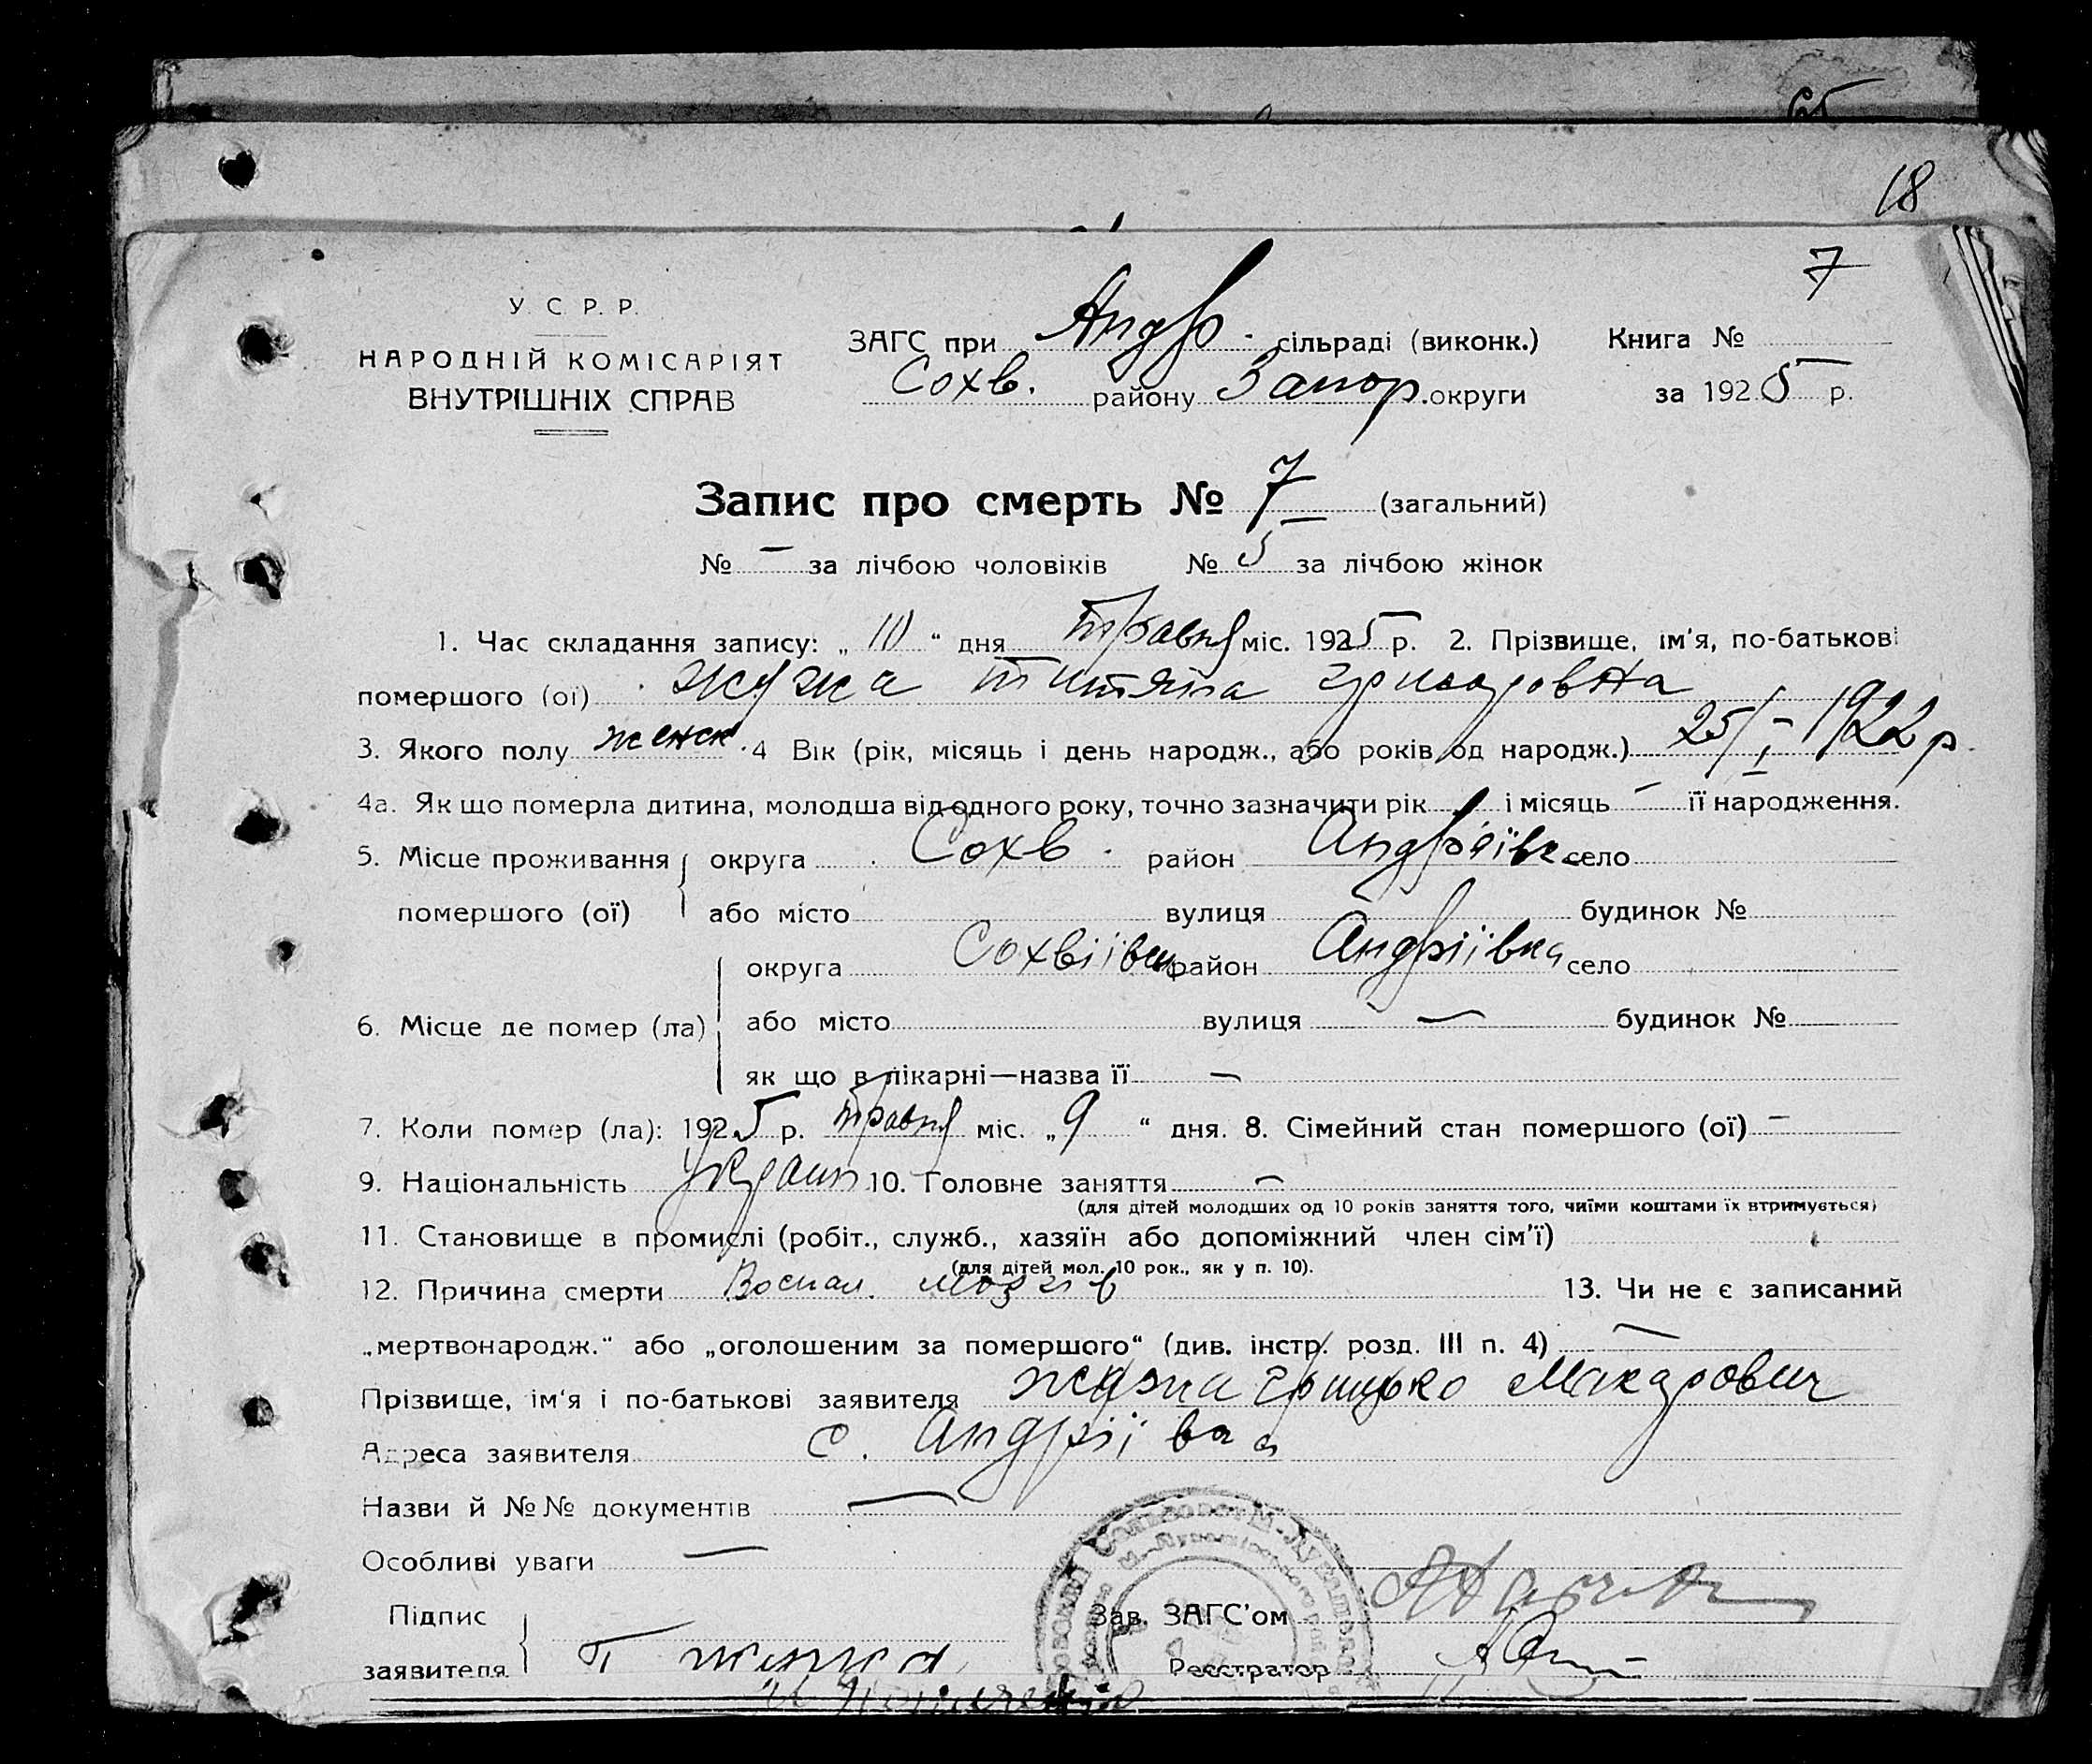 65
18
7
У. С. Р. Р.
НАРОДНІЙ КОМІСАРІЯТ
ВНУТРІШНІХ СПРАВ
ЗАГС при Андр. сільраді (виконк.) Книга №
Сохв. району Запор. округи за 1925 р.
Запис про смерть № 7 (загальний)
№ — за лічбою чоловіків № 5 за лічбою жінок
1. Час складання запису: „10“ дня травня міс. 1925 р. 2. Прізвище, ім'я, по-батькові
помершого (ої) Титяна
3. Якого полу женск. 4 Вік (рік, місяць і день народж., або років од народж.) 25/I – 1922 р.
4а. Як що померла дитина, молодша від одного року, точно зазначити рік і місяць — її народження.
5. Місце проживання округа Сохв. район Андріївка село
помершого (ої) або місто вулиця будинок №
округа Сохвіївськ район Андріївка село
6. Місце де помер (ла) або місто вулиця — будинок №
як що в лікарні—назва її —
7. Коли помер (ла): 1925 р. травня міс. „9“ дня. 8. Сімейний стан помершого (ої) —
9. Національність Україн 10. Головне заняття —
(для дітей молодших од 10 років заняття того, чиїми коштами їх втримується)
11. Становище в промислі (робіт., служб., хазяїн або допоміжний член сім'ї)
(для дітей мол. 10 рок., як у п. 10).
12. Причина смерти Воспал. мозгів 13. Чи не є записаний
„мертвонародж.“ або „оголошеним за помершого“ (див. інстр. розд. III п. 4) —
Прізвище, ім'я і по-батькові заявителя Грицько Макарович
Адреса заявителя с. Андріївка
Назви й №№ документів —
Особливі уваги —
Підпис Зав. ЗАГС'ом
заявителя Реєстратор